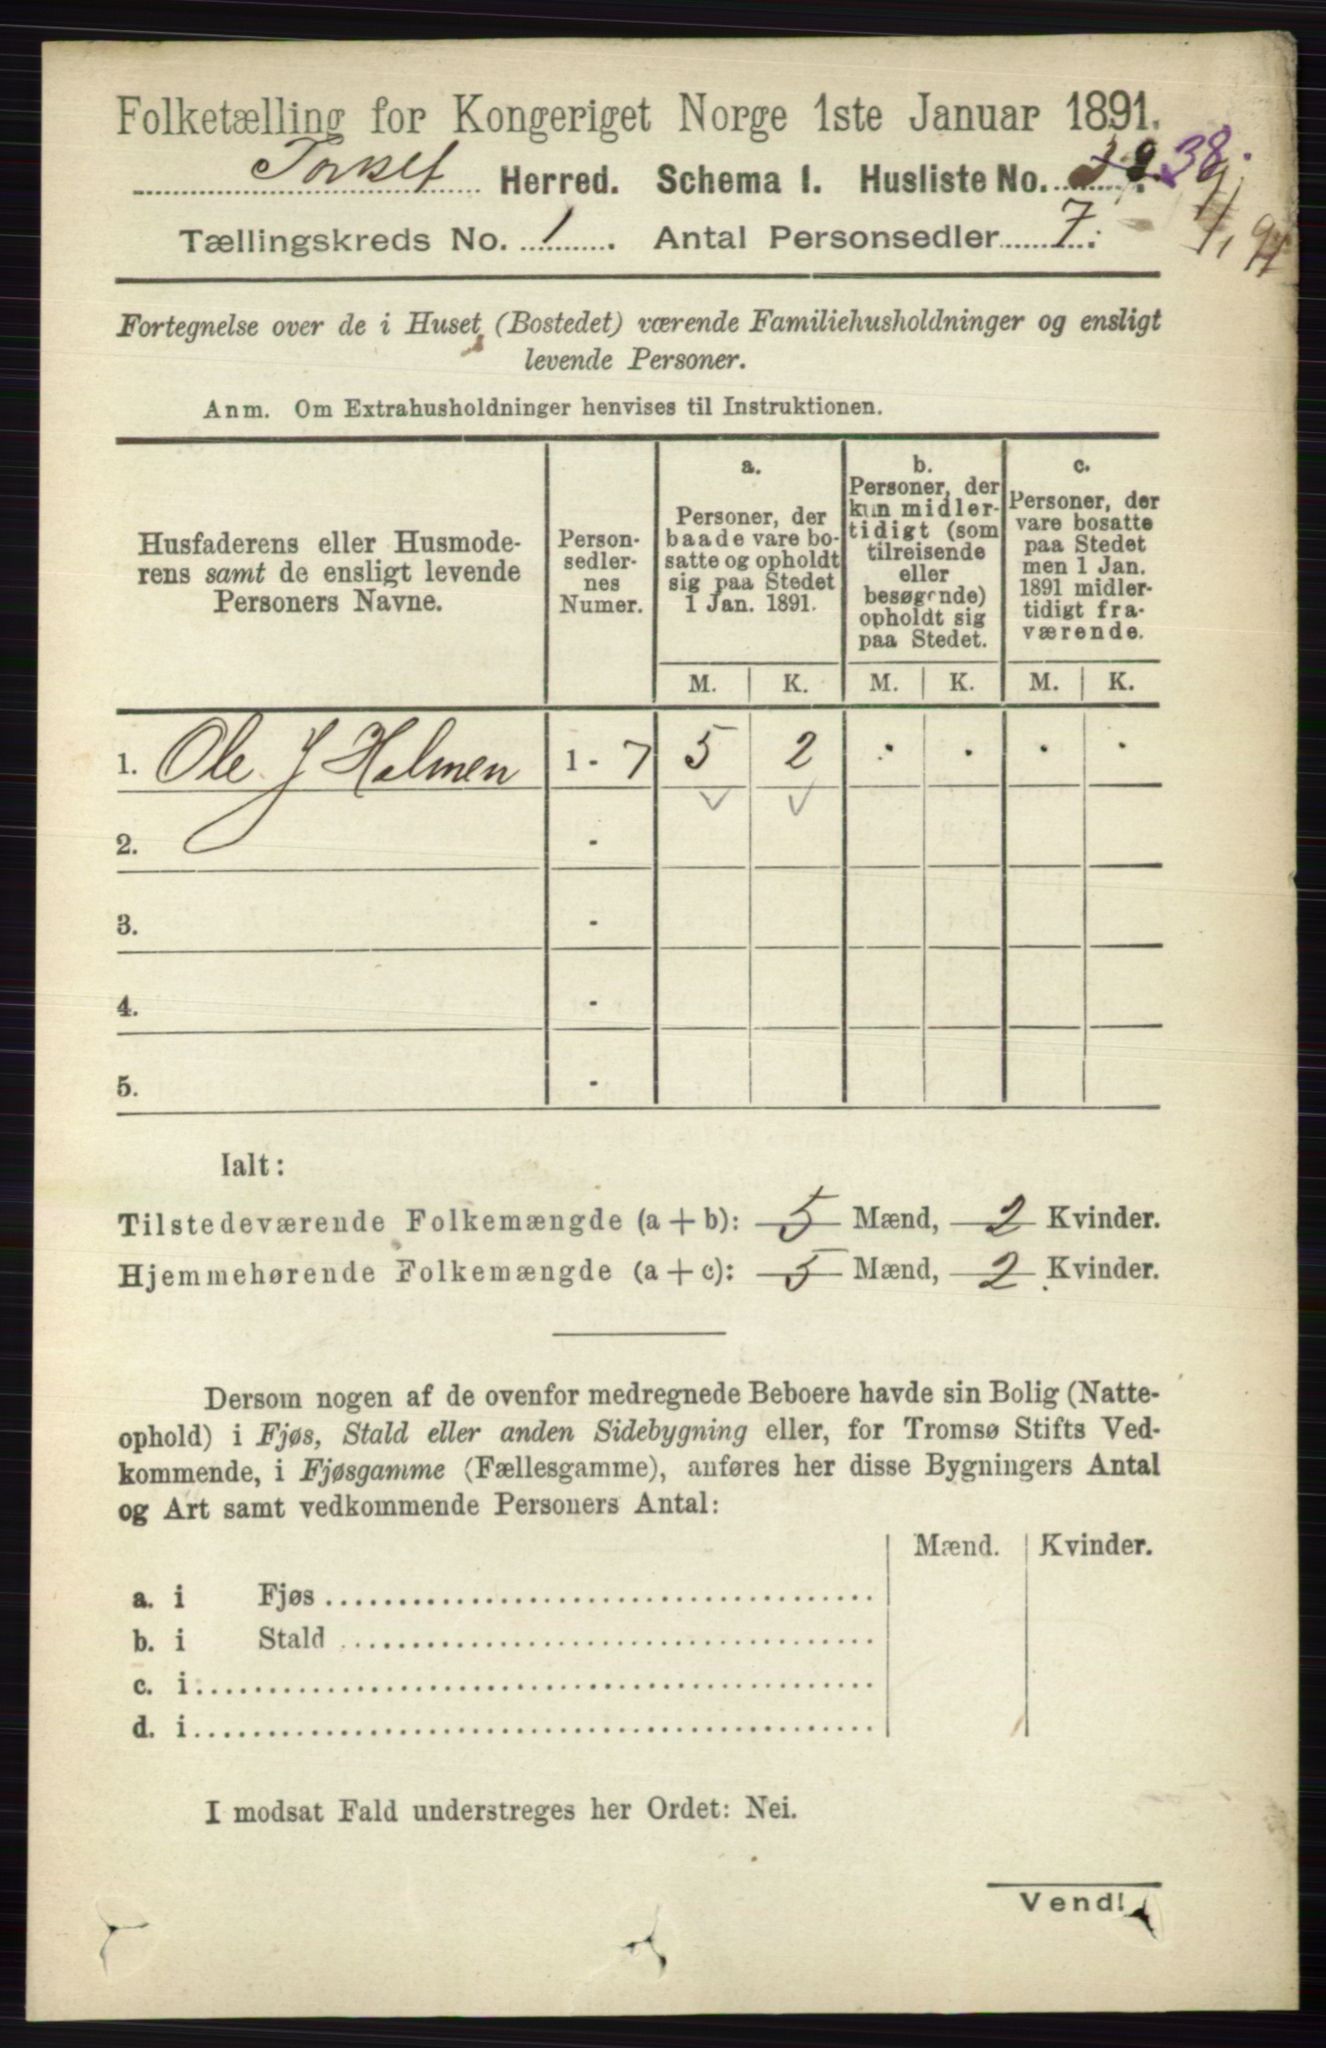 Folketælling for Kongeriget Norge 1ste Januar 1891.
Torset Herred. Schema I. Husliste No. 39. 38.
Tællingskreds No. 1. Antal Personsedler 7.
Fortegnelse over de i Huset (Bostedet) værende Familiehusholdninger og ensligt
levende Personer.
Anm. Om Extrahusholdninger henvises til Instruktionen.
Husfaderens eller Husmode-
rens samt de ensligt levende
Personers Navne.
Person-
sedler-
nes
Numer.
a.
Personer, der
baade vare bo-
satte og opholdt
sig paa Stedet
1 Jan. 1891.
b.
Personer, der
kun midler-
tidigt (som
tilreisende
eller
besøgende)
opholdt sig
paa Stedet.
c.
Personer, der
vare bosatte
paa Stedet
men 1 Jan.
1891 midler-
tidigt fra-
værende.
M. K. M. K. M. K.
1. Ole J Holmen 1 - 7 5 2 . . . .
2. -
3. -
4. -
5. -
Ialt:
Tilstedeværende Folkemængde (a + b): 5 Mænd, 2 Kvinder.
Hjemmehørende Folkemængde (a + c): 5 Mænd, 2 Kvinder.
Dersom nogen af de ovenfor medregnede Beboere havde sin Bolig (Natte-
ophold) i Fjøs, Stald eller anden Sidebygning eller, for Tromsø Stifts Ved-
kommende, i Fjøsgamme (Fællesgamme), anføres her disse Bygningers Antal
og Art samt vedkommende Personers Antal:
Mænd. Kvinder.
a. i Fjøs
b. i Stald
c. i
d. i
I modsat Fald understreges her Ordet: Nei.
Vend!